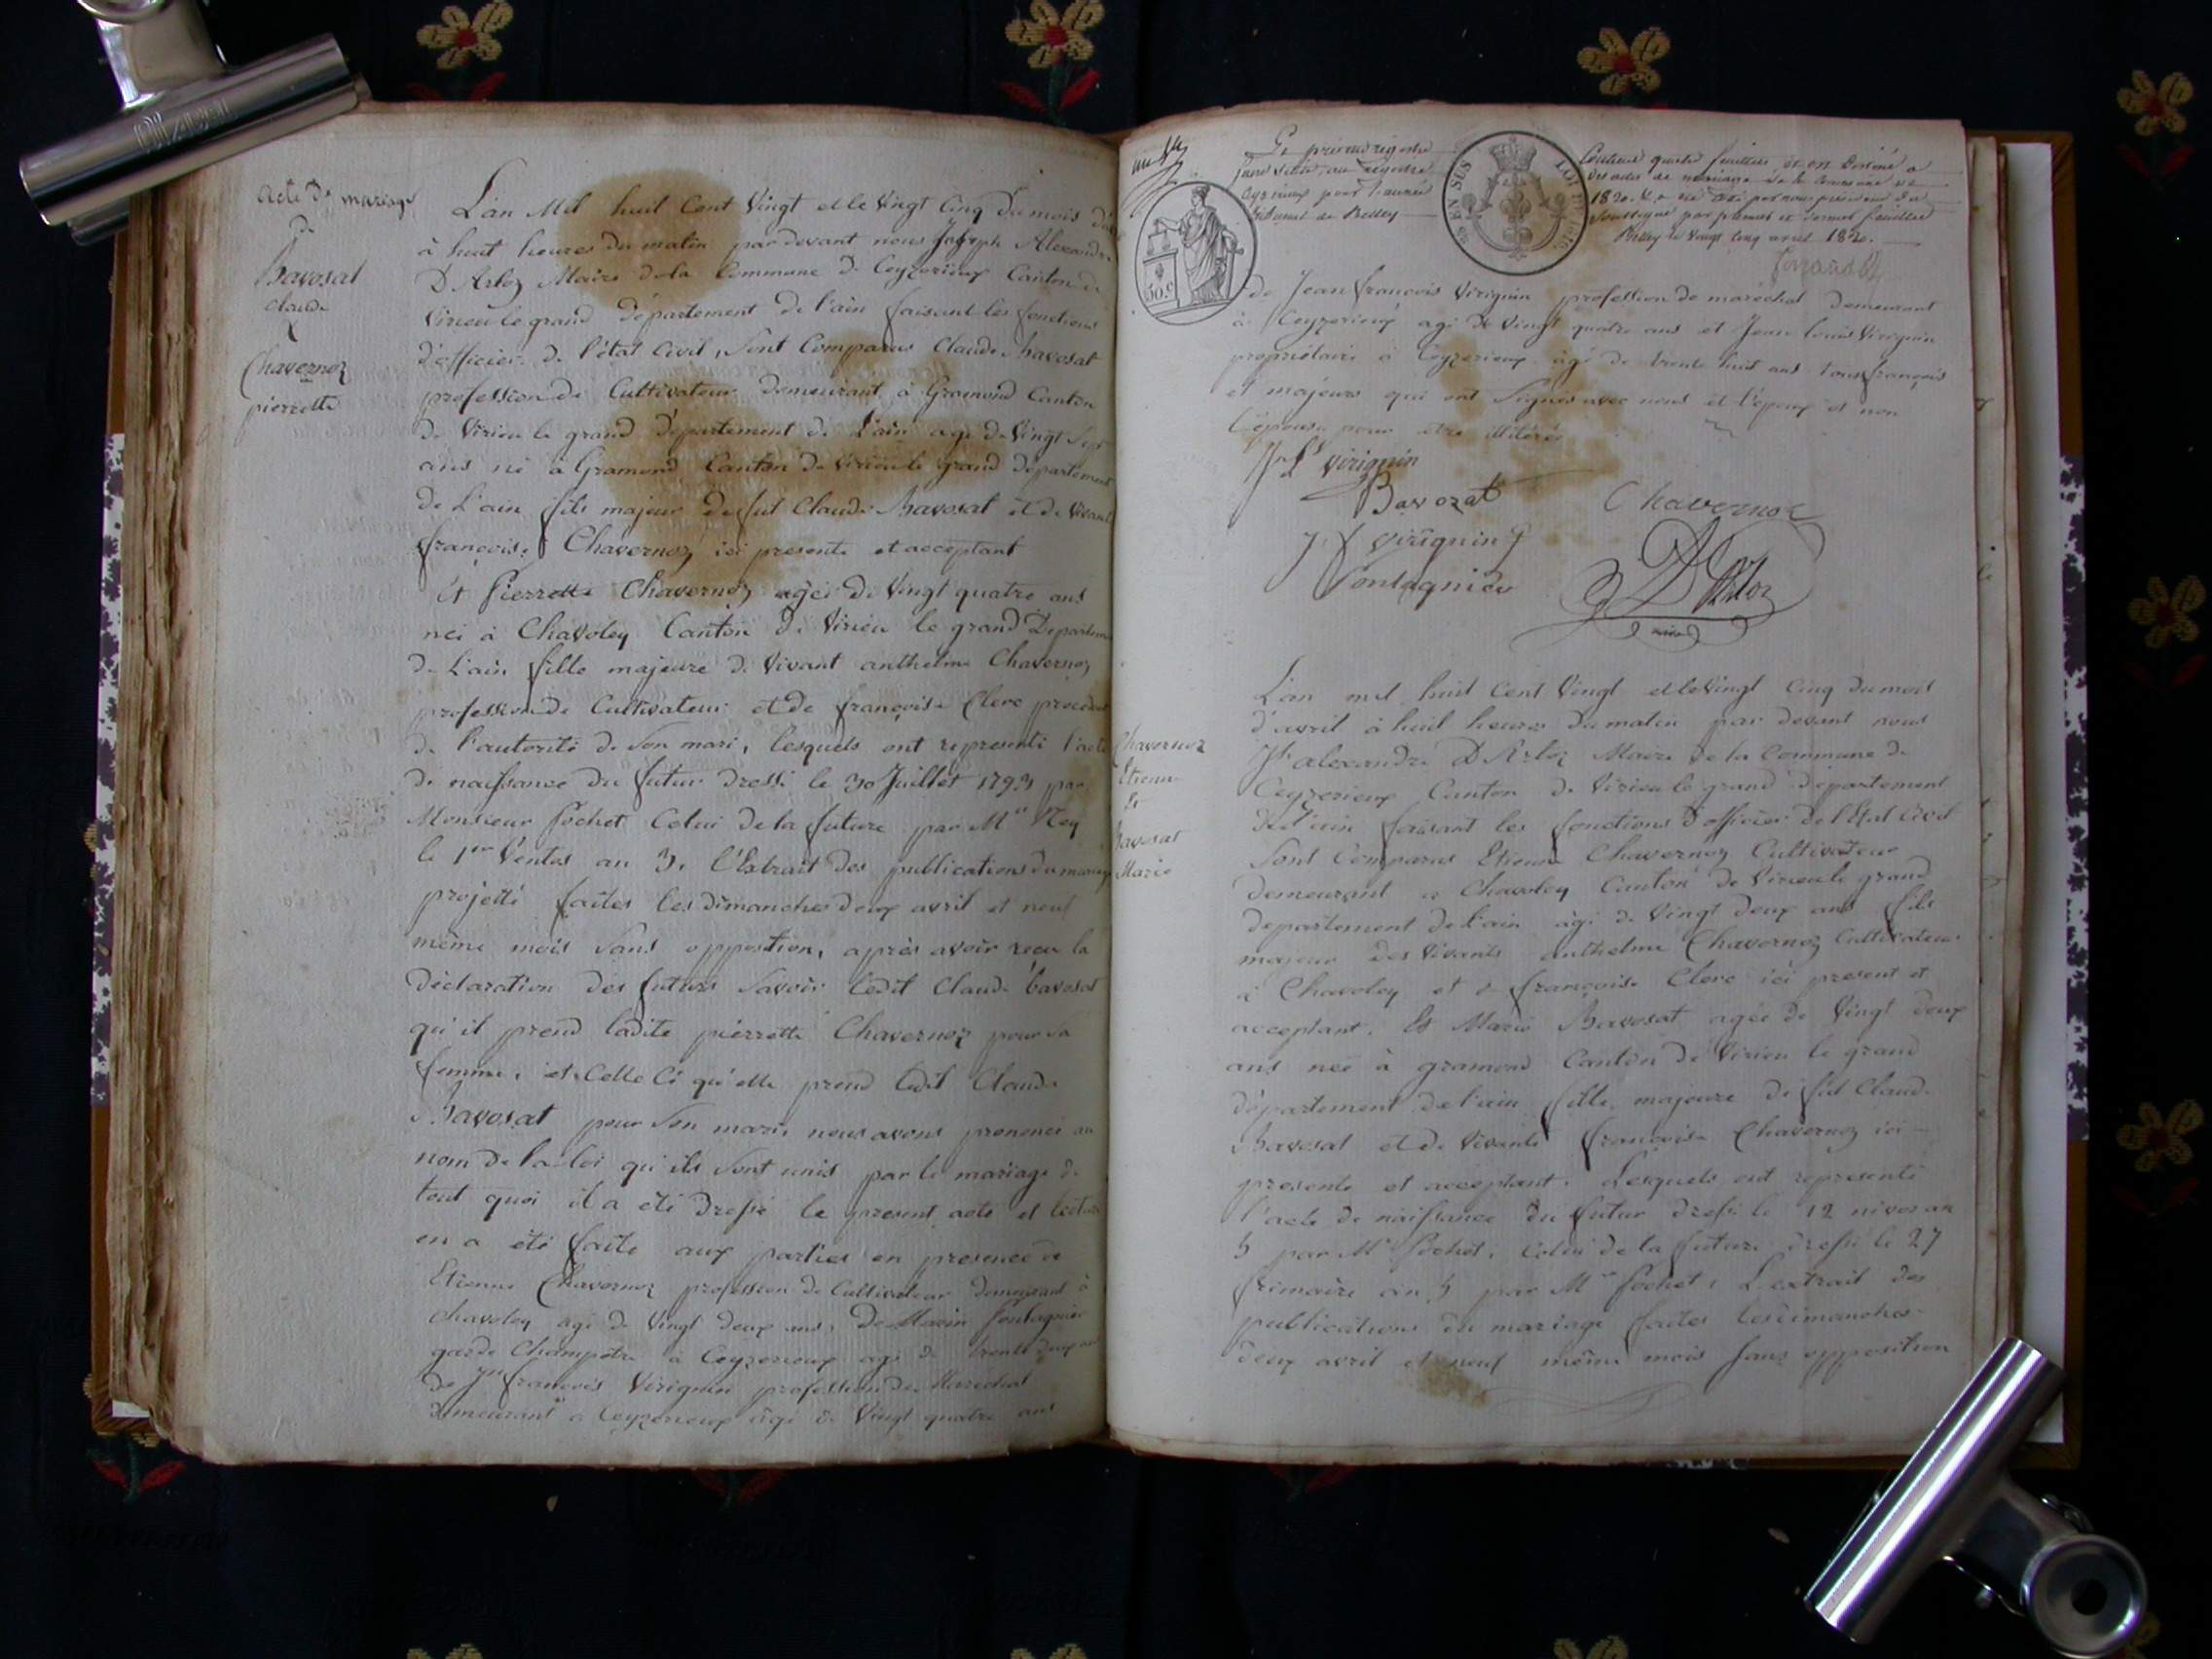 Acte de mariage
de
Bavosat
claude
&
Chavernoz
pierrette
L'an Mil huit Cent Vingt et le Vingt Cinq du mois d'
à huit heures du matin par devant nous Joseph Alexandre
D'Arloz Maire de la Commune de Ceyzerieux Canton de
Virieu le grand département de l'ain faisant les fonctions
d'officier de l'état Civil, Sont Comparus Claude Bavosat
profession de Cultivateur demeurant à Gramond Canton
de Virieu le grand département de L'ain agé de Vingt Sept
ans né à Gramond Canton de Virieu le grand département
de L'ain fils majeur de fut Claude Bavosat et de Vivante
françoise Chavernoz ici presente et acceptant
Et Pierrette Chavernoz agée de Vingt quatre ans
née à Chavoley Canton de Virieu le grand Departem
de L'ain fille majeure de Vivant anthelme Chavernoz
profession de Cultivateur et de françoise Clerc procédant
de l'autorité de Son mari, lesquels ont representé l'acte
de naissance du futur dressé le 30 Juillet 1793 par
Monsieur Pochet Celui de la future par Mr Rey
le 1er Ventos an 3. l'Extrait des publications du mariage
projetté faites les dimanches deux avril et neuf
même mois Sans opposition, après avoir reçu la
déclaration des futurs Savoir ledit Claude bavosat
qu'il prend ladite pierrette Chavernoz pour Sa
femme, et Celle Ci qu'elle prend ledit Claude
Bavosat pour Son mari, nous avons prononcé au
nom de la loi qu'ils Sont unis par le mariage de
tout quoi il a été dressé le present acte et lecture
en a été faite aux parties en presence de
Etienne Chavernoz profession de Cultivateur demeurant à
Chavoley agé de Vingt deux ans, De Marin fontagnier
garde Champêtre à Ceyzerieux agé de trente deux ans
de Jn françois Virignin profession de Marechal
demeurant à Ceyzerieux agé de Vingt quatre ans
Le présent registre
pour servir au registre
Ceyzerieux pour l'année
tribunal de Belley
30 EN SUS
LOI DE 1816
50 C
Contenant quatre feuillets est destiné à
des actes de mariage de la Commune de
1820. & a été coté par nous président du
soussigné par premier et dernier feuillet
Belley le vingt cinq avril 1820.
de Jean françois Virignin profession de maréchal demeurant
à Ceyzerieux agé de Vingt quatre ans et Jean louis Virignin
propriétaire à Ceyzerieux âgé de trente huit ans tous français
et majeurs qui ont Signés avec nous et l'époux et non
l'épouse pour être illitérée
Jn Ls virignin
Bavozat
Chavernoz
J. f virignin
fontagnier
D'Arloz
maire
Chavernoz
Etienne
Et
Bavosat
Marie
L'an mil huit Cent Vingt et le Vingt Cinq du mois
d'avril à huit heures du matin par devant nous
Jh alexandre D'Arloz Maire de la Commune de
Ceyzerieux Canton de Virieu le grand département
de l'ain faisant les fonctions d'officier de l'état Civil
Sont Comparus Etienne Chavernoz Cultivateur
demeurant a Chavoley Canton de Virieu le grand
departement de l'ain âgé de Vingt deux ans fils
majeur des Vivants anthelme Chavernoz Cultivateur
à Chavoley et de françoise Clerc ici present et
acceptant. Et Marie Bavosat agée de Vingt deux
ans née à gramond Canton de Virieu le grand
département de l'ain fille majeure de fut Claude
Bavosat et de Vivante françoise Chavernoz ici
presente et acceptant. Lesquels ont representé
l'acte de naissance du futur dressé le 12 nivos an
5 par Mr Pochet, Celui de la future dressé le 27
frimaire an 5 par Mr Pochet, L'extrait des
publications du mariage faites les dimanches
deux avril et neuf même mois Sans opposition